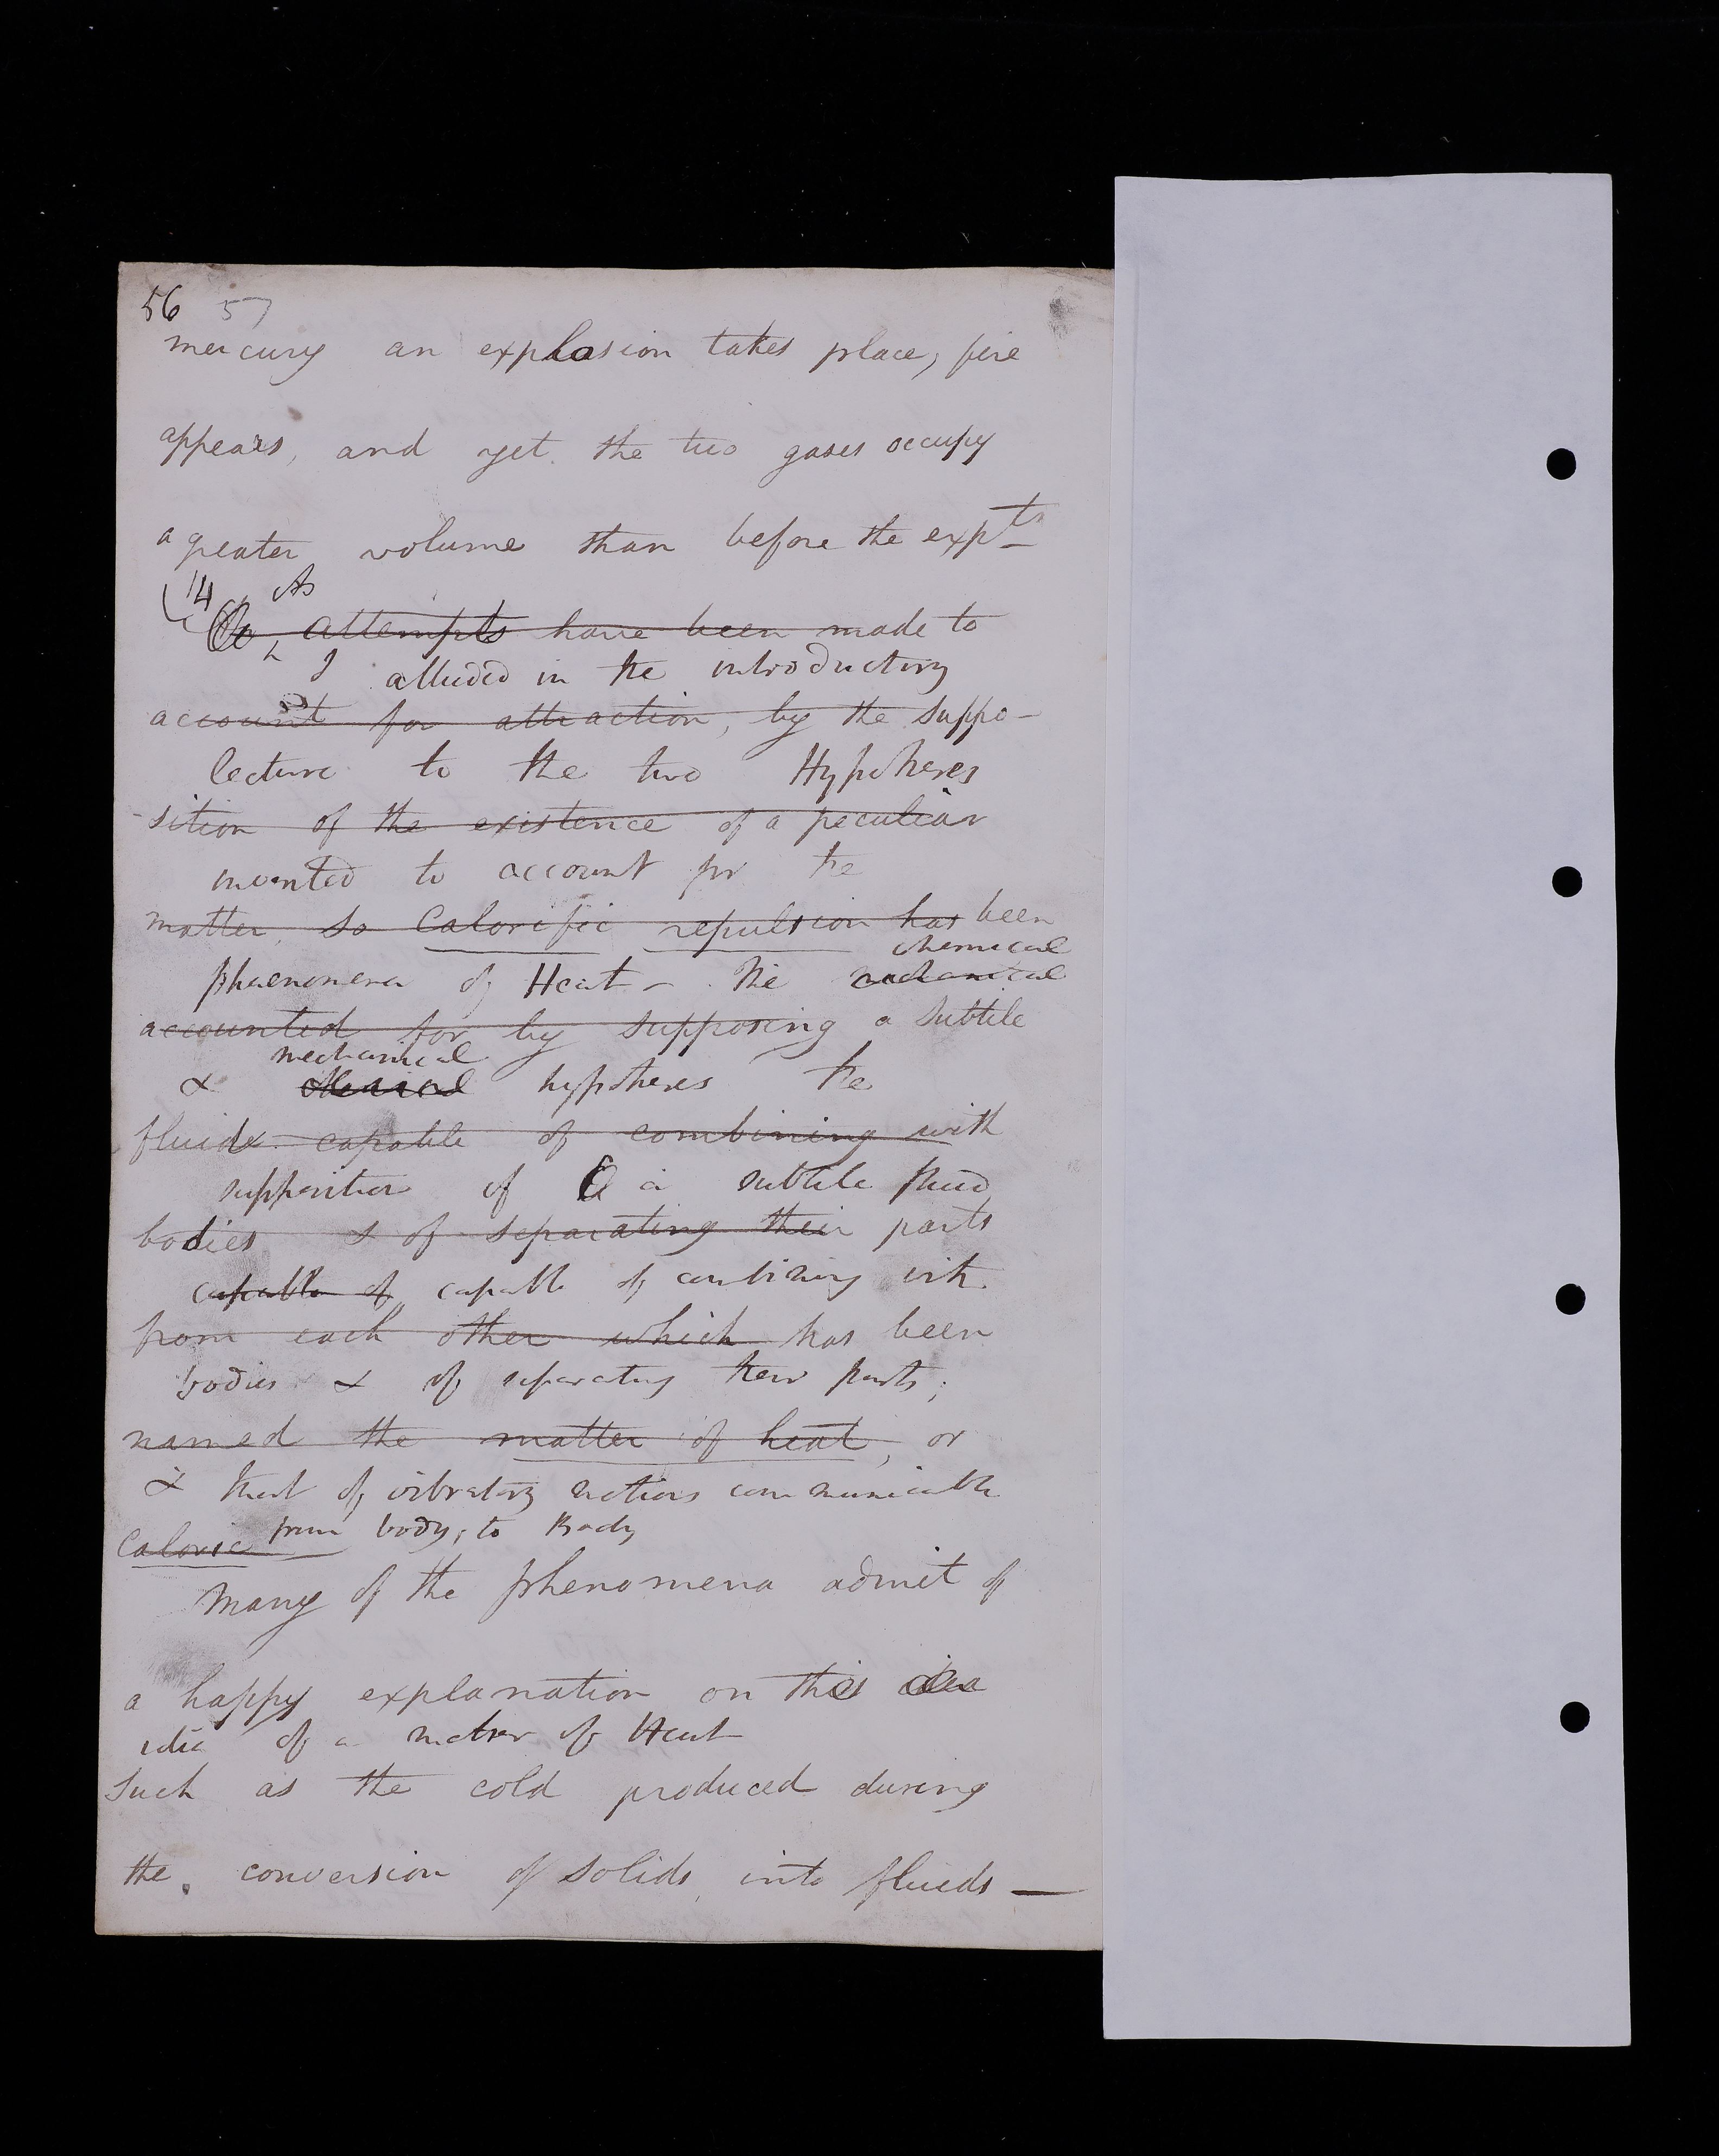 56 57
mercury an explosion takes place, fire
appears, and yet the two gases occupy
a greater volume than before the expts
14 As
As attempts have been made to
I alluded in the introductory
account for attraction, by the suppo-
lecture to the two Hypotheses
sition of the existence of a peculiar
invented to account for the
matter, so Calorific repulsion has been
chemical
phaenomena of Heat - The mechanical
accounted for by supposing a subtile
mechanical
& chemical hypotheses the
fluid capable of combining with
supposition of a subtile fluid
bodies & of separating their parts
capable of capable of combining with
from each other which has been
bodies & of separating their parts;
named the matter of heat, or
& that of vibratory motions communicable
from body, to Body
Caloric
Many of the phenomena admit of
a happy explanation on this idea
idea of a matter of Heat
Such as the cold produced during
the conversion of solids into fluids —